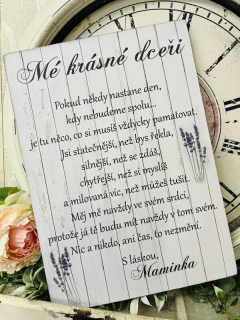 Mé krásné dceři
Pokud někdy nastane den,
kdy nebudeme spolu...
je tu něco, co si musíš vždycky pamatovat.
Jsi statečnější, než bys řekla,
silnější, než se zdáš,
chytřejší, než si myslíš
a milovaná víc, než můžeš tušit.
Měj mě navždy ve svém srdci,
protože já tě budu mít navždy v tom svém.
Nic a nikdo, ani čas, to nezmění.
S láskou,
Maminka